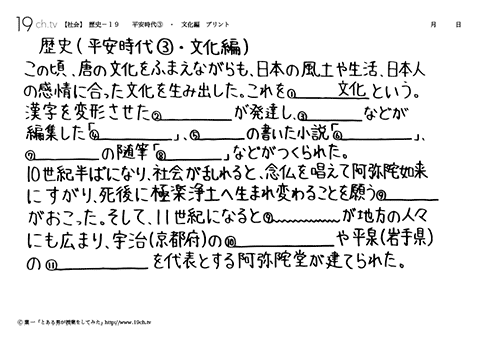 19ch.tv 【社会】 歴史－19 平安時代③ ・ 文化編 プリント 月 日
歴史(平安時代③・文化編)
この頃、唐の文化をふまえながらも、日本の風土や生活、日本人
の感情に合った文化を生み出した。これを①____文化という。
漢字を変形させた②____が発達し、③____などが
編集した「④____」、⑤____の書いた小説「⑥____」、
⑦____の随筆「⑧____」などがつくられた。
10世紀半ばになり、社会が乱れると、念仏を唱えて阿弥陀如来
にすがり、死後に極楽浄土へ生まれ変わることを願う⑨____
がおこった。そして、11世紀になると⑨____が地方の人々
にも広まり、宇治(京都府)の⑩____や平泉(岩手県)
の⑪____を代表とする阿弥陀堂が建てられた。
Ⓒ葉一「とある男が授業をしてみた」http://www.19ch.tv